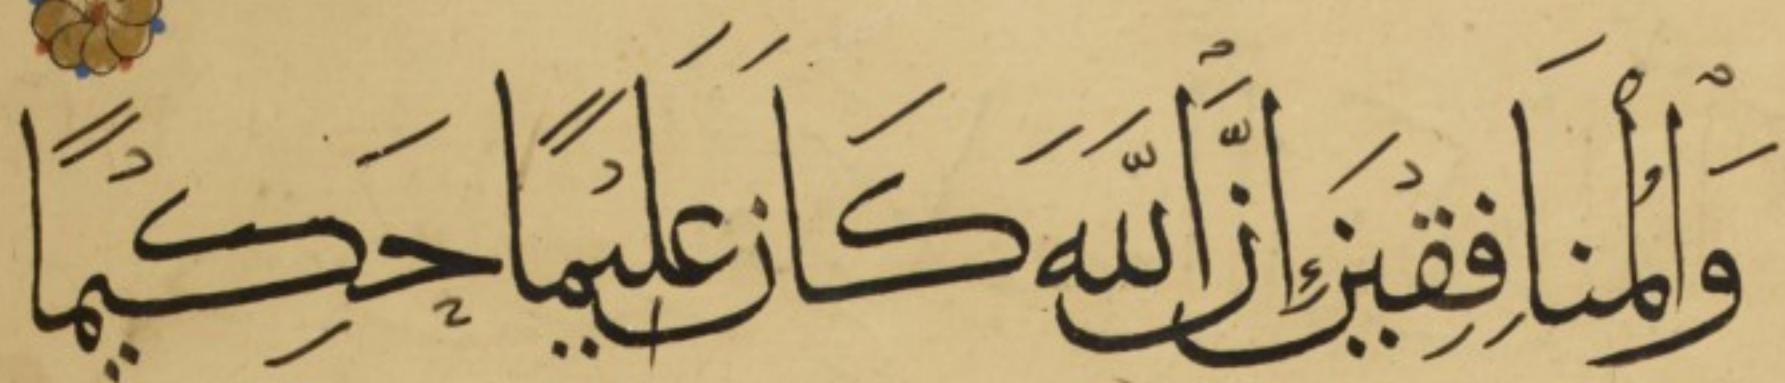 وَالْمُنَافِقِيْنَ إِنَّ اللَّهَ كَانَ عَلِيْمًا حَكِيْمًا